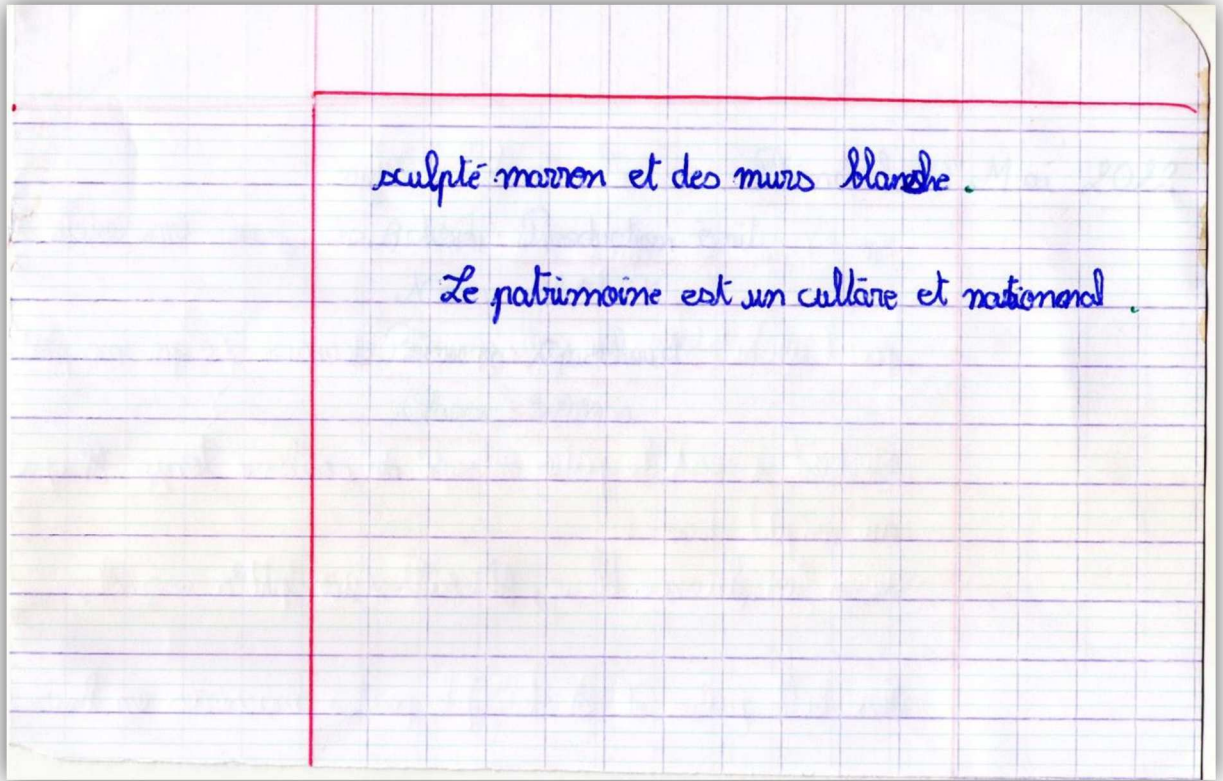 sculpté marron et des murs blanche.
Le patrimoine est un cultāre et nationnal.